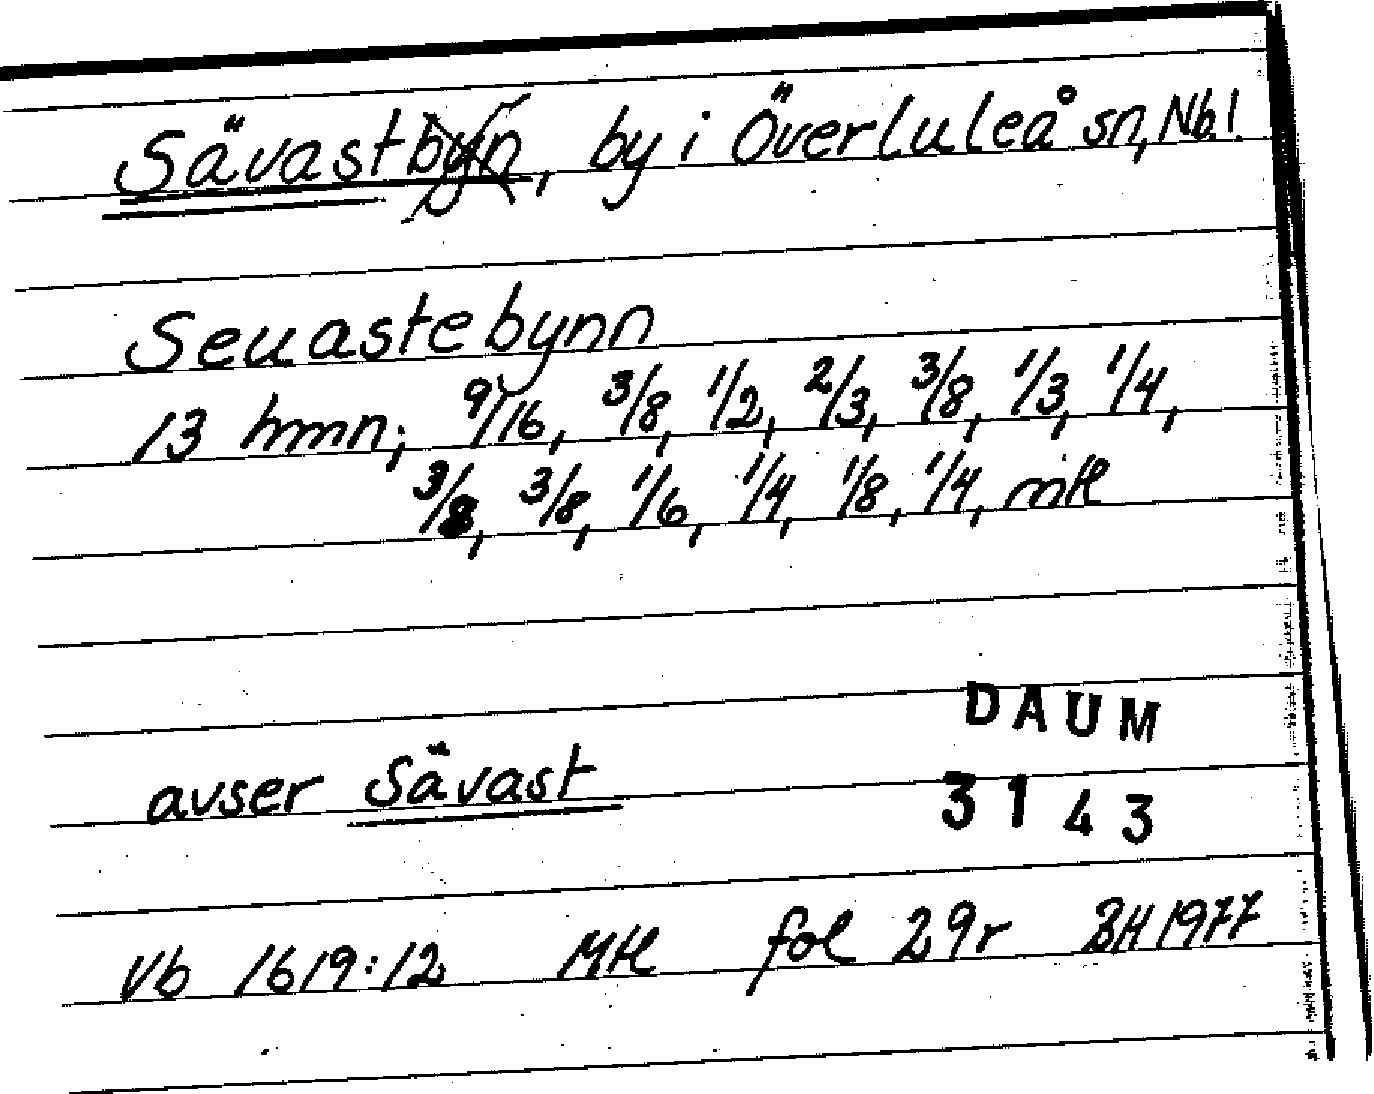 Sävastbyn, by i Överluleå sn, Nbl.
Seuastebynn
13 hmn; 9/16, 3/8, 1/2, 2/3, 3/8, 1/3, 1/4,
3/8, 3/8, 1/6, 1/4, 1/8, 1/4, mtl
DAUM
avser Sävast
3143
Vb 1619:12 Mtl fol 29r BH 1977